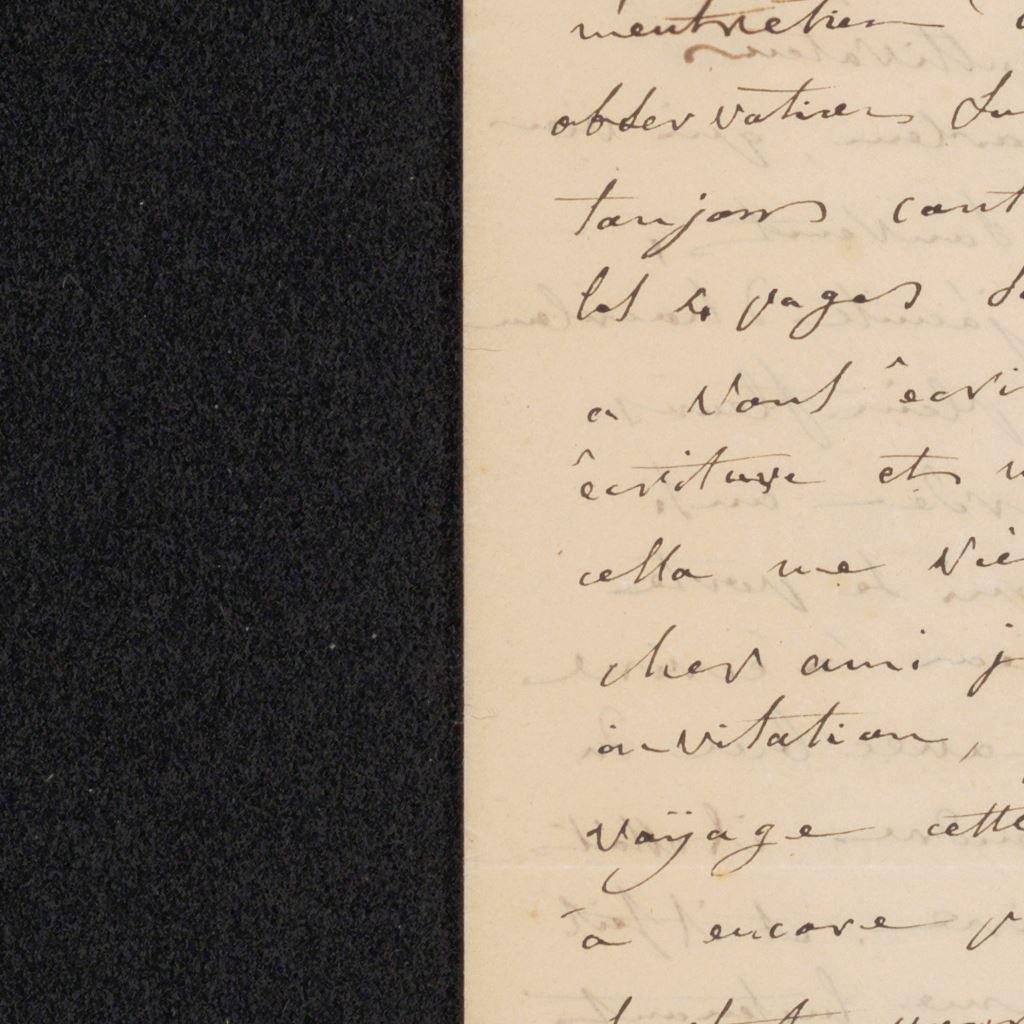 mentretien
observation
toujours
les 4 pages
a vous êcri
êcriture et
cella me
cher ami j
invitation,
voÿage cette
à encore